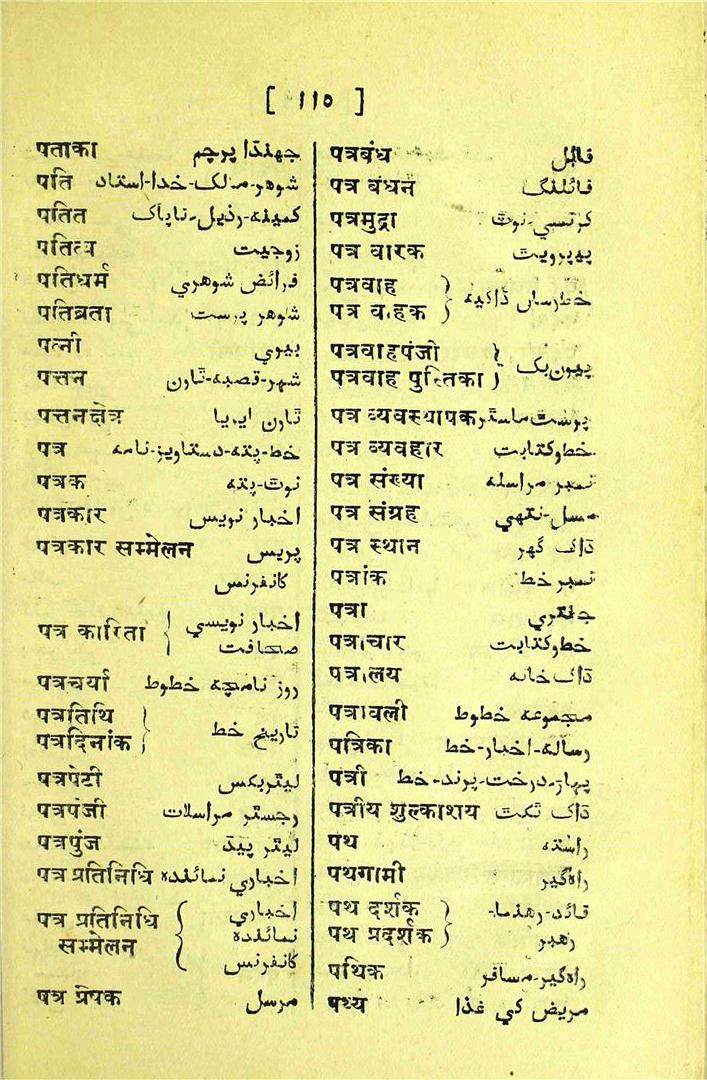 [ ١١٥ ]
पताका جهنڈا پرچم
पति شوهر-مالک-خدا-استاد
पतित کمینه-رذیل-ناپاک
पतित्व زوجیت
पतिधर्म فرائض شوهري
पतिब्रता شوهر پرست
पत्नी بیوي
पत्तन شهر-قصبه-ٹاون
पत्तनक्षेत्र ٹاون ایریا
पत्र خط-پته-دستاویز-نامه
पत्रक نوٹ-پته
पत्रकार اخبار نویس
पत्रकार सम्मेलन پریس
کانفرنس
पत्र कारिता } اخبار نویسي
صحافت
पत्रचर्या روز نامچه خطوط
पत्रतिथि
पत्रदिनांक } تاریخ خط
पत्रपेटी لیٹربکس
पत्रपंजी رجسٹر مراسلات
पत्रपुंज لیٹر پیڈ
पत्र प्रतिनिधि اخباري نمائنده
पत्र प्रतिनिधि { اخباري
सम्मेलन نمائنده
کانفرنس
पत्र प्रेषक مرسل
पत्रबंध فائل
पत्र बंधन فائلنگ
पत्रमुद्रा کرنسي-نوٹ
पत्र वारक پیپرویٹ
पत्रवाह
पत्र वाहक } خط رساں ڈاکیه
पत्रवाहपंजी
पत्रवाह पुस्तिका } پیون بک
पत्र व्यवस्थापक پوسٹ ماسٹر
पत्र व्यवहार خط و کتابت
पत्र संख्या نمبر مراسله
पत्र संग्रह مسل-نتهي
पत्र स्थान ڈاک گهر
पत्रांक نمبر خط
पत्रा جنتري
पत्राचार خط و کتابت
पत्रालय ڈاک خانه
पत्रावली مجموعه خطوط
पत्रिका رساله-اخبار-خط
पत्री پہاڑ-درخت-پرند-خط
पत्रीय शुल्काशय ڈاک ٹکٹ
पथ راسته
पथगामी راه گیر
पथ दर्शक
पथ प्रदर्शक } قائد-رهنما-
رهبر
पथिक راه گیر-مسافر
पथ्य مریض کي غذا